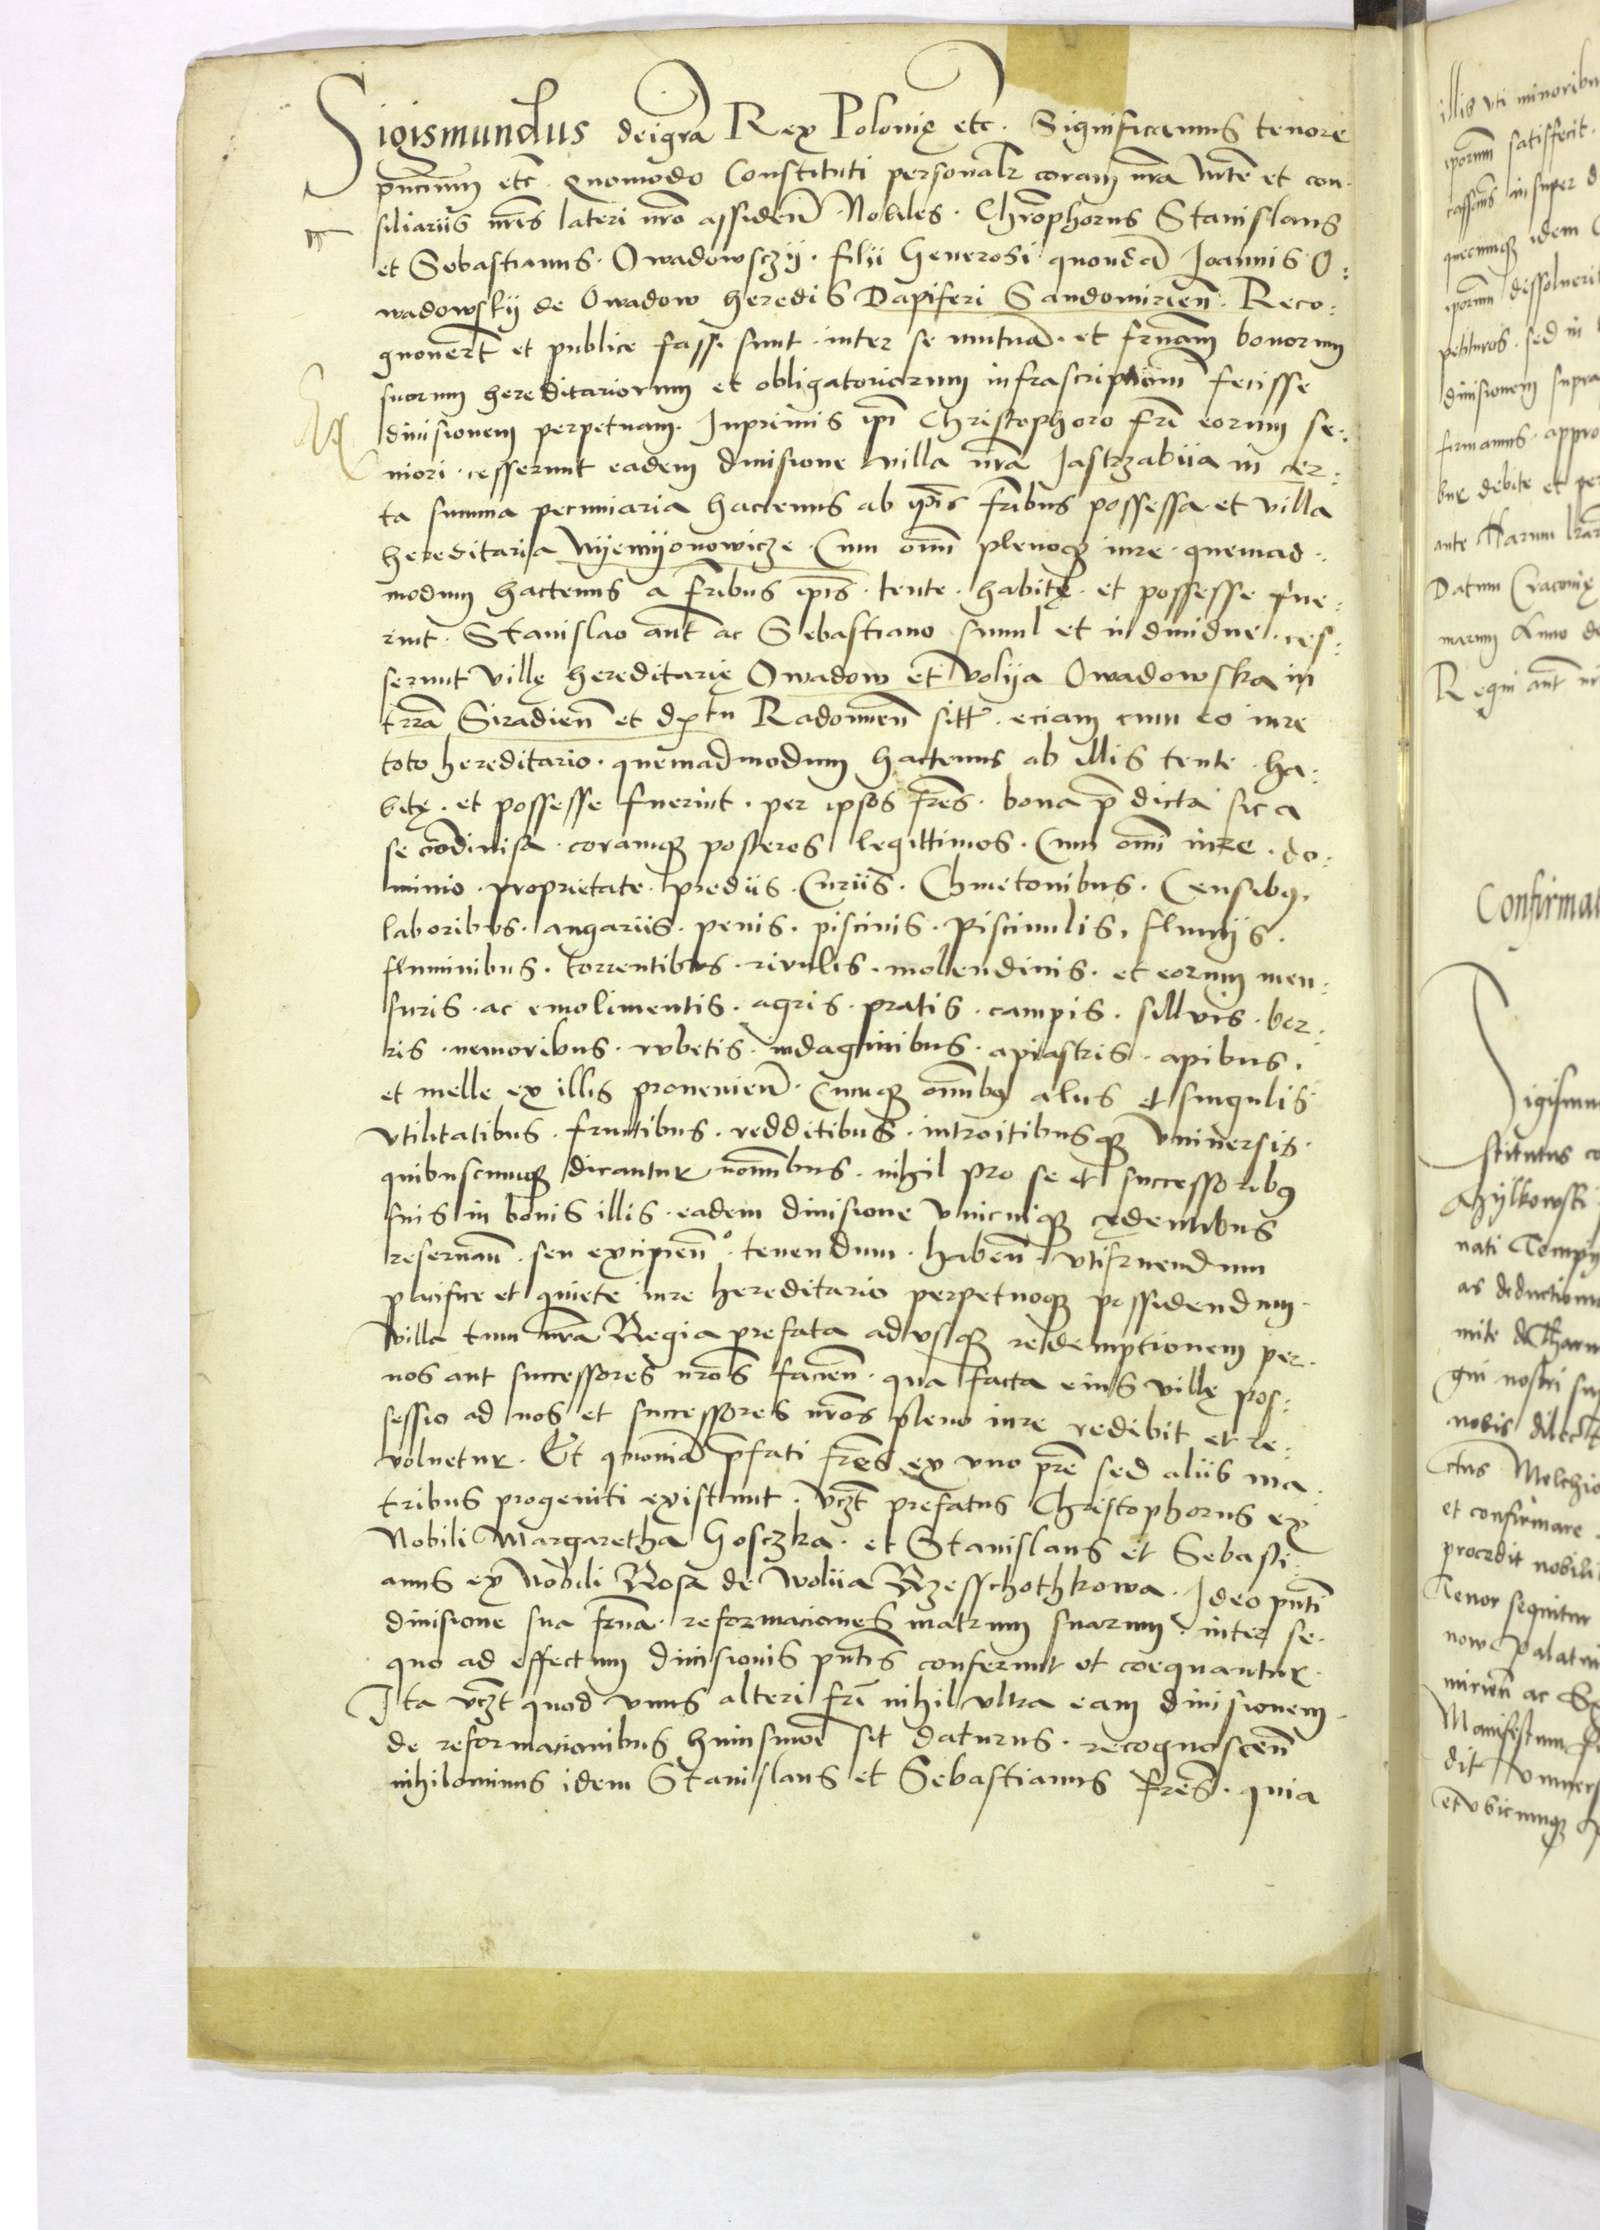 Sigismundus dei gra Rex Polonię etc. Significamus tenore
pntium etc. Quomodo Constituti personalr coram nra Mte et con-
siliariis nris lateri nro assiden. Nobiles. Chrophorus Stanislaus
et Sebastianus. Owadowsczÿ. filii Generosi quonda Joannis O:
wadowskij de Owadow heredis Dapiferi Sandomirien. Reco:
gnouert et publice fassi sunt. inter se mutua. et frnam bonorum
suorum hereditariorum et obligatoriorum infrascriptorum fecisse
diuisionem perpetuam. Inprimis ipi Christophoro fri eorum se:
niori. cesserunt eadem diuisione villa nra Jastrzabiia in cer:
ta summa pecuniaria hactenus ab ipis fribus possessa et villa
hereditaria Nyemyonowicze. Cum omni plenoqȝ iure. quemad:
modum hactenus a fribus ipis. tente. habitę. et possesse fue:
rint. Stanislao aut ac Sebastiano simul et indiuidue. ces:
serunt villę hereditarię Owadow et Volija Owadowska in
trra Siradien et dritu Radomien sitt. eciam cum eo iure
toto hereditario. quemadmodum hactenus ab illis tente. ha:
bitę. et possesse fuerint. per ipsos fres. bona pdicta sic a
se condiuisa. eorumqȝ posteros legittimos. Cum omni iure. do:
minio. proprietate. prediis. Curiis. Chmetonibus. Censibꝰ.
laboribus. angariis. penis. piscinis. Piscinulis. fluuijs.
fluminibus. torrentibus. riuulis. molendinis. et eorum men:
suris. ac emolimentis. agris. pratis. campis. silluis. bor:
ris. nemoribus. rubetis. indaginibus. apiastris. apibus.
et melle ex illis prouenien. Cumqȝ omnibꝰ aliis et singulis
vtilitatibus. fructibus. redditibus. introitibusqȝ vniuersis.
quibuscumqȝ dicantur nominbus. nihil pro se et successoribꝰ
suis in bonis illis. eadem diuisione vnicuiqȝ cędentibus
reseruan. seu excipien. tenendum. haben. vtifruendum
pacifice et quiete iure hereditario perpetuoqȝ possidendum.
Villa tum nra Regia prefata ad vsqȝ redemptionem per.
nos aut successores nros facien. qua facta eius villę pos:
sessio ad nos et successores nros pleno iure redibit et re:
voluetur. Et quonia pfati fres ex vno pre sed aliis ma:
tribus progeniti existunt. vczt prefatus Christophorus ex
Nobili Margaretha Gosczka. et Stanislaus et Sebasti:
anus ex Nobili Rosa de Woliia Rzesschothkowa. Ideo pnti
diuisione sua frna. reformaciones matrum suarum. inter se.
quo ad effectum diuisionis pntis conferunt et coequantur.
Ita vczt quod vnus alteri fri nihil vltra eam diuisionem.
de reformacionibus huiusmodi sit daturus. recognoscen
nihilominus idem Stanislaus et Sebastianus fres. quia
illis vti minoribu
iporum satisfecit.
cassans insuper d
quecumqȝ idem
iporum dissoluerit
petituros. sed in
diuisionem supra
firmamus. appro
bur debite et per
ante Harum lrar
Datum Cracouię
marum Anno do
Regni aut nr
Confirmat
Sigismun
stitutus co
Mylkowski
nati
as deductionu
mite de Tharn
gni nostri su
nobis dilect
ctus Melchio
et confirmare
procedit nobili
Tenor sequitur
now Palatin
mirien ac
Manifestum
dit Vniuers
et vbicumqȝ